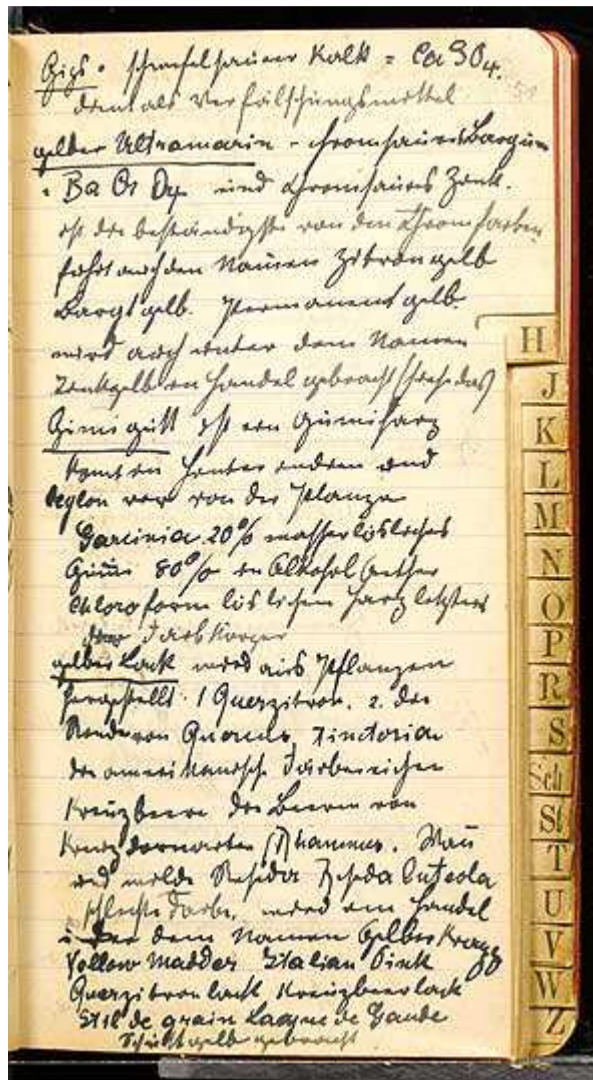 Gips. schwefelsaurer Kalk = CaSO4.
dient als Verfälschungsmittel
gelber Ultramarin - chromsaures Baryum
= Ba Cr O4 und chromsaures Zink.
ist die beständigste von den Chromfarben
führt auch den Namen Zitrongelb
Barytgelb. Permanentgelb.
wird auch unter dem Namen
Zinkgelb in Handel gebracht (siehe das)
Gimigutt ist ein Gumiharz
kommt in hinter indien und
Ceylon vor von der Pflanze
Garcinia. 20% wasserlösliches
Gumi 80% in Alkohol Aether
Chloroform löslichem Harz letzters
der Farbkörper
gelber Lack wird aus Pflanzen
hergestellt. 1 Querzitron. 2. der
Rinde von Quercus Tinctoria
der amerikanisch. Färbereichen
Kreuzbeere die Beeren von
Kreuzdornarten (Rhamnus. Wau
und wilde Reseda Reseda Luteola
schlechte Farbe, wird im Handel
unter dem Namen Gelber Krapp
Yellow Madder Italian Pink
Querzitronlack Kreuzbeerlack
Stil de grain Laque de Gaude
Schüttgelb gebracht
H
J
K
L
M
N
O
P
R
S
Sch
St
T
U
V
W
Z